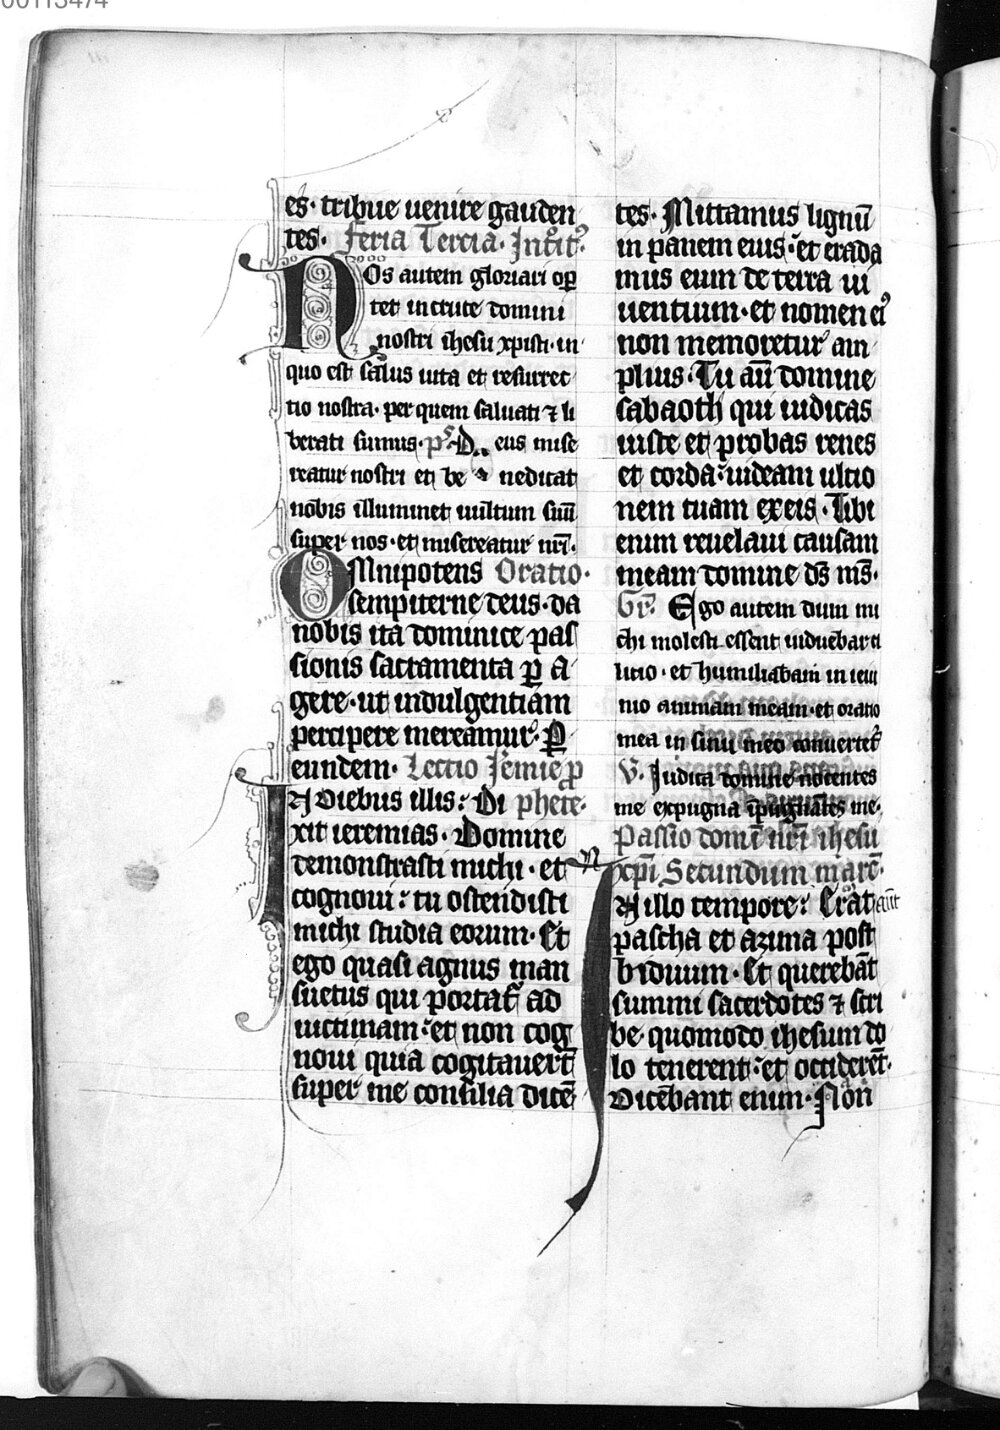 00113474
es· tribue uenire gauden
tes· Feria Tercia· Int͛oit᷒
Nos autem gloriari oꝑ
tet in cruce domini
nostri ihesu xpisti· in
quo est salus uita et resurrec
tio nostra· per quem saluati ⁊ li
berati sumus· p̄s· Deus mise
reatur nostri et be nedicat
nobis illuminet uultum suū
super nos· et misereatur nr̄i·
OMnipotens Oratio·
sempiterne deus· da
nobis ita dominice pas
sionis sacramenta ꝑ a
gere· ut indulgentiam
percipere mereamur· Ꝑ
eundem· Lectio Jemie ꝓ
IN diebus illis: Di phete·
xit ieremias· Domine
demonstrasti michi· et
cognoui: tu ostendisti
michi studia eorum· Et
ego quasi agnus man
suetus qui portat᷒ ad
uictimam: et non cog
noui quia cogitauer̄t
super me consilia dicē
tes· Mittamus lignū
in panem eius: et erada
mus eum de terra ui
uentium· et nomen ei᷒
non memoretur am
plius· Tu aū domine
sabaoth qui iudicas
iuste et probas renes
et corda: uideam ultio
nem tuam ex eis· Tibi
enim reuelaui causam
meam domine ds̄ ms̄·
Gr̄· Ego autem dum mi
chi molesti essent induebar ci
licio· et humiliabam in ieiu
nio animam meam· et oratio
mea in sinu meo conuertet᷒
V· Iudica domine nocentes
me expugna īpugnātes me·
Passio domī nr̄i ihesu
xp̄i Secundum marc̄·
IN illo tempore: Erat aūt
pascha et azima post
biduum· Et querebāt
summi sacerdotes ⁊ scri
be· quomodo ihesum do
lo tenerent: et occideret᷒·
Dicebant enim· Non